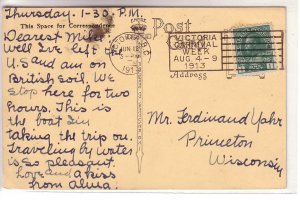 Thursday. 1-30. P.M.
Post
This Space for Correspondence
Dearest
Well I've left
U.S and am on
British Soil. We
stop here for two
hours. This is
the boat I'm
taking the trip on.
Traveling by water
is so pleasant.
Love and a kiss
from Alma.
VICTORIA
CARNIVAL
WEEK
AUG. 4-9
1913
Address
Mr. Ferdinand
Princeton
Wisconsin